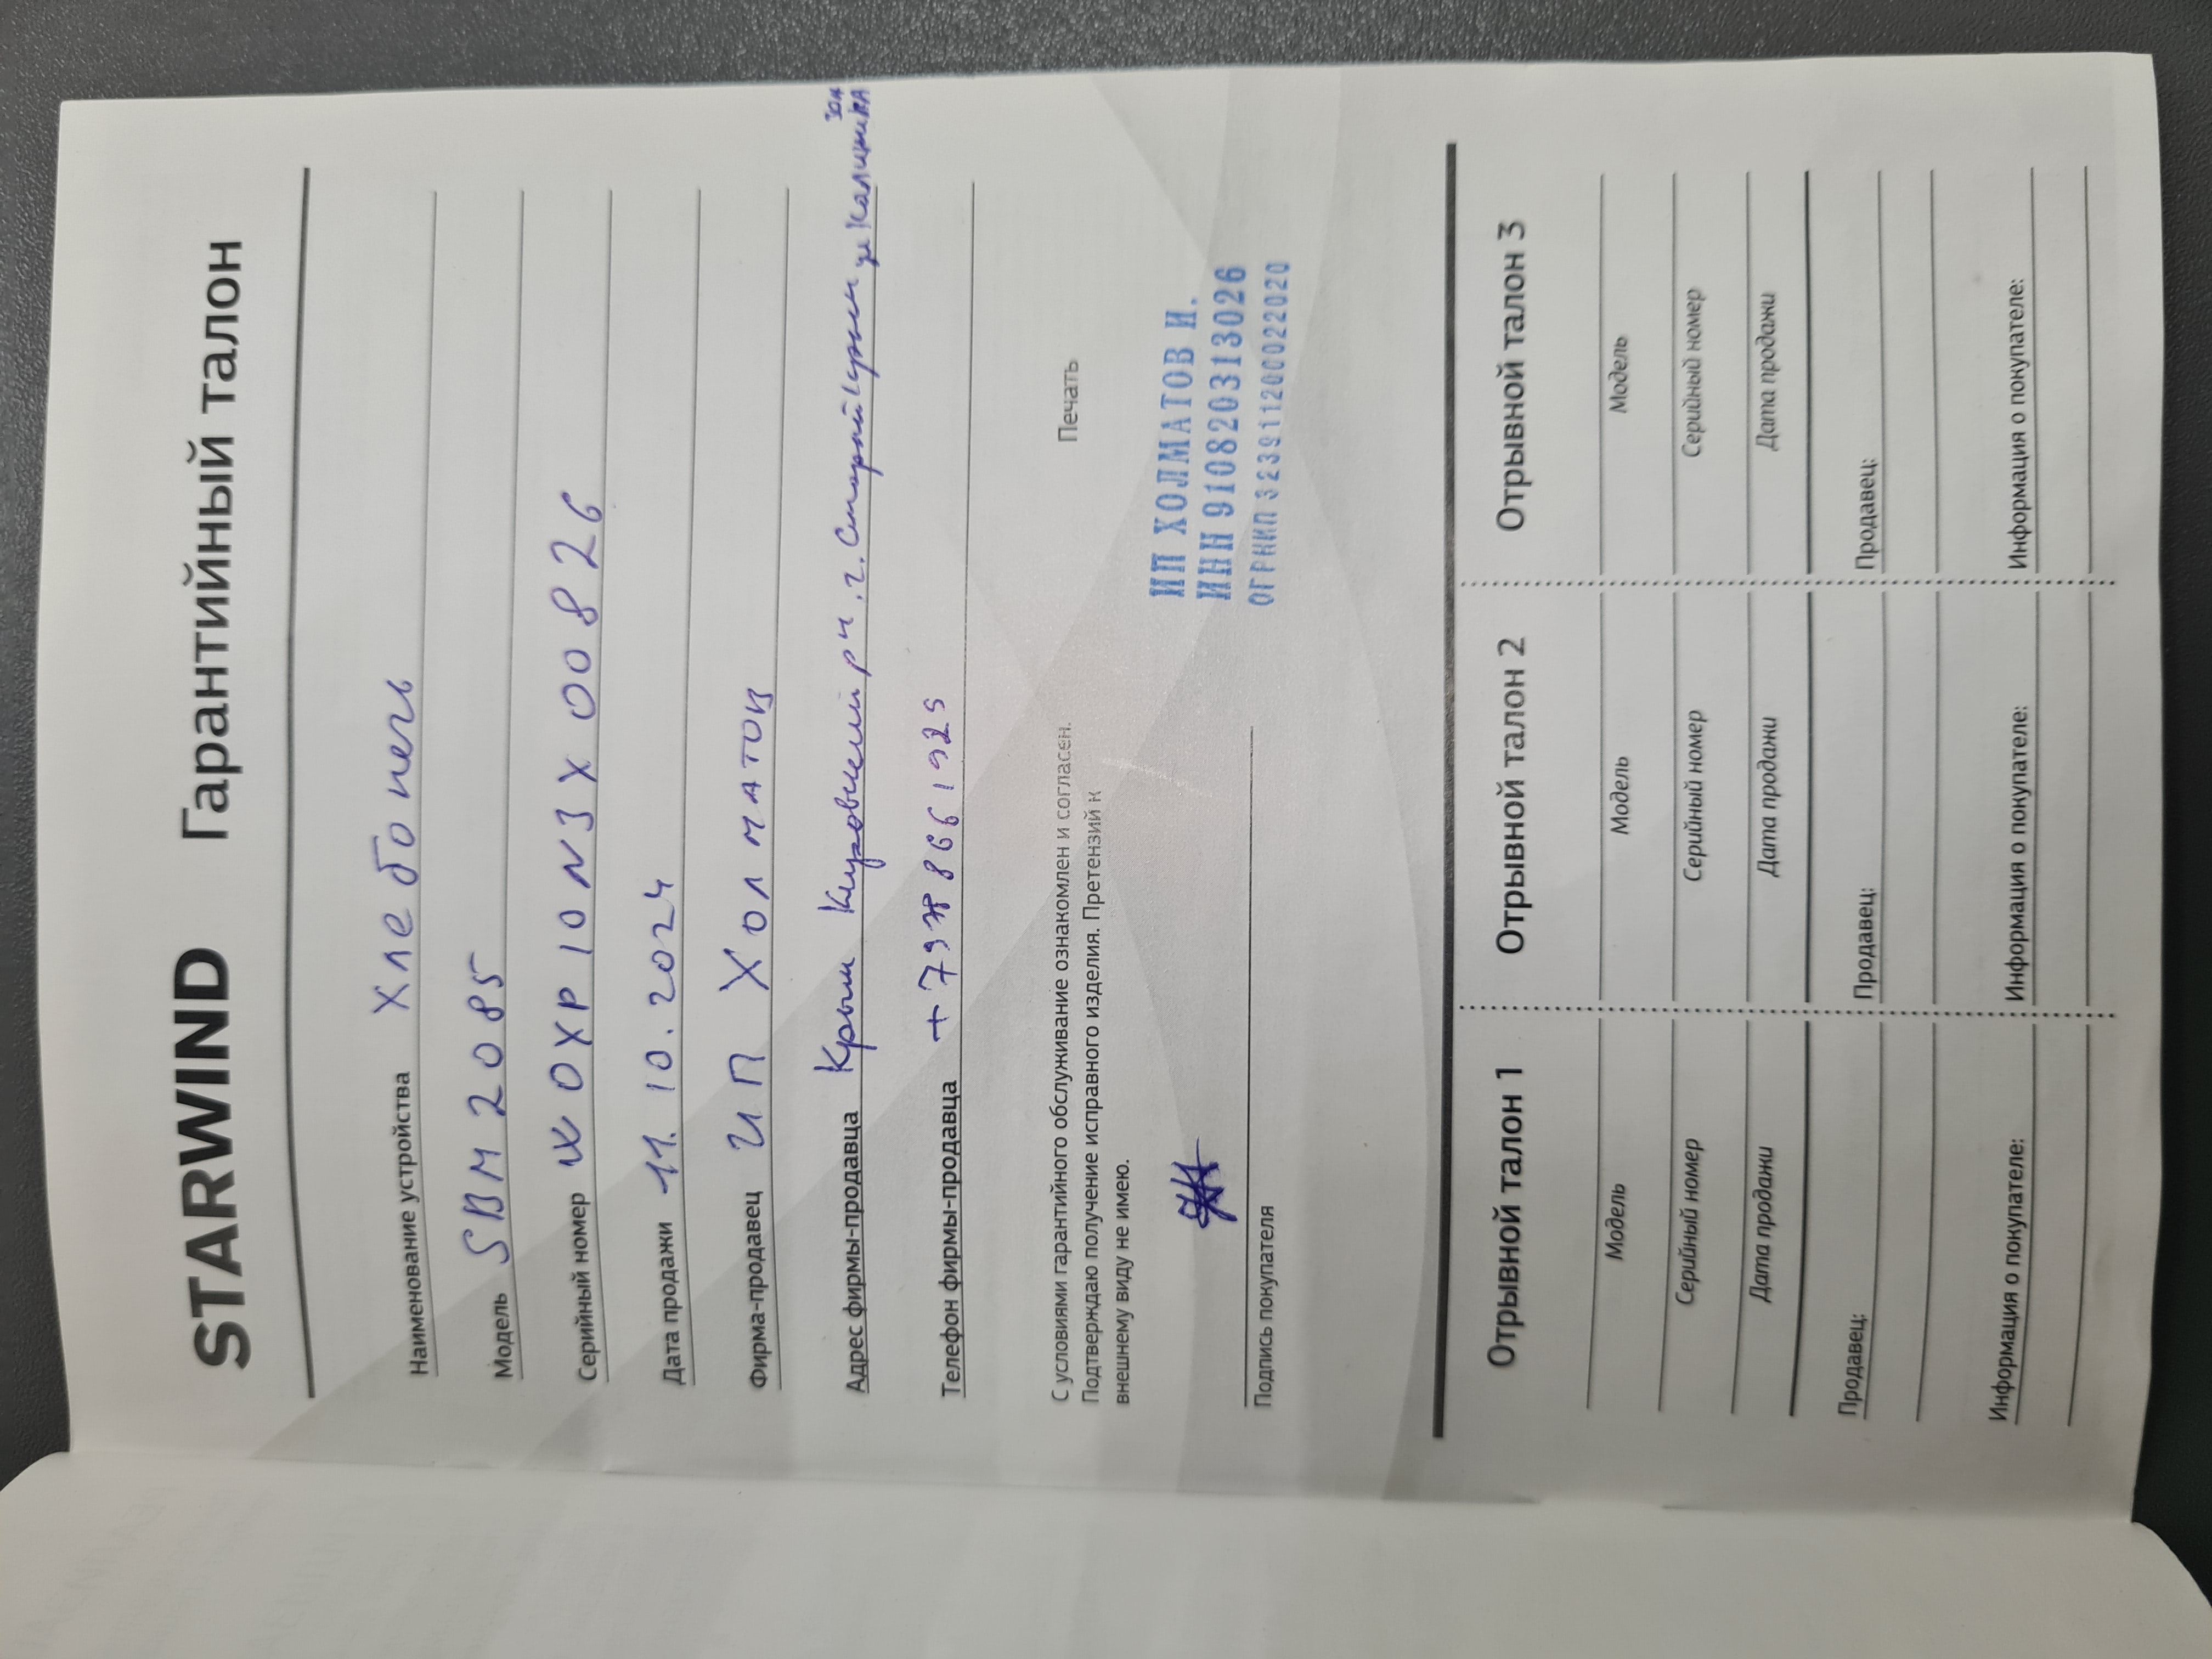 STARWIND Гарантийный талон
Наименование устройства Хлебопечь
Модель SBM 2085
Серийный номер WOXP10N3X00826
Дата продажи 11.10.2024
Фирма-продавец ИП Холматов
Адрес фирмы-продавца Крым Кировский р н. г. Старый Крым ул Калинина
Телефон фирмы-продавца +79788661925
С условиями гарантийного обслуживание ознакомлен и согласен.
Подтверждаю получение исправного изделия. Претензий к
внешнему виду не имею.
Печать
ИП ХОЛМАТОВ И.
ИНН 910820313026
ОГРНИП 323911200022020
Подпись покупателя
Отрывной талон 1
Модель
Серийный номер
Дата продажи
Продавец:
Информация о покупателе:
Отрывной талон 2
Модель
Серийный номер
Дата продажи
Продавец:
Информация о покупателе:
Отрывной талон 3
Модель
Серийный номер
Дата продажи
Продавец:
Информация о покупателе: